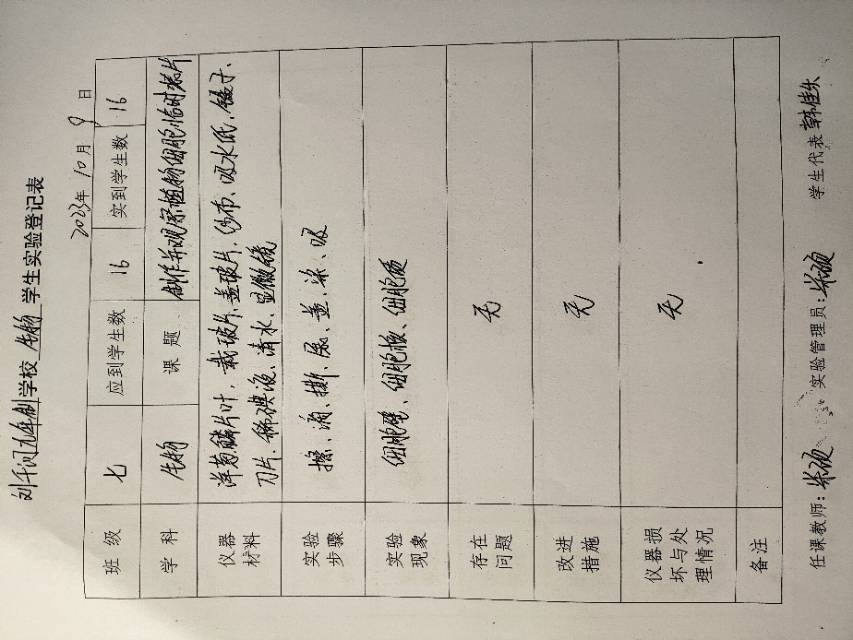 刘千河九年制学校 生物 学生实验登记表
2023年 10月 9日
班级 七 应到学生数 16 实到学生数 16
学科 生物 课题 制作并观察植物细胞临时装片
仪器材料 洋葱鳞片叶、载玻片、盖玻片、纱布、吸水纸、镊子、
刀片、稀碘液、清水、显微镜
实验步骤 擦、滴、撕、展、盖、染、吸
实验现象 细胞壁、细胞核、细胞质
存在问题 无
改进措施 无
仪器损坏与处理情况 无
备注
任课教师: 实验管理员: 学生代表 韩佳乐